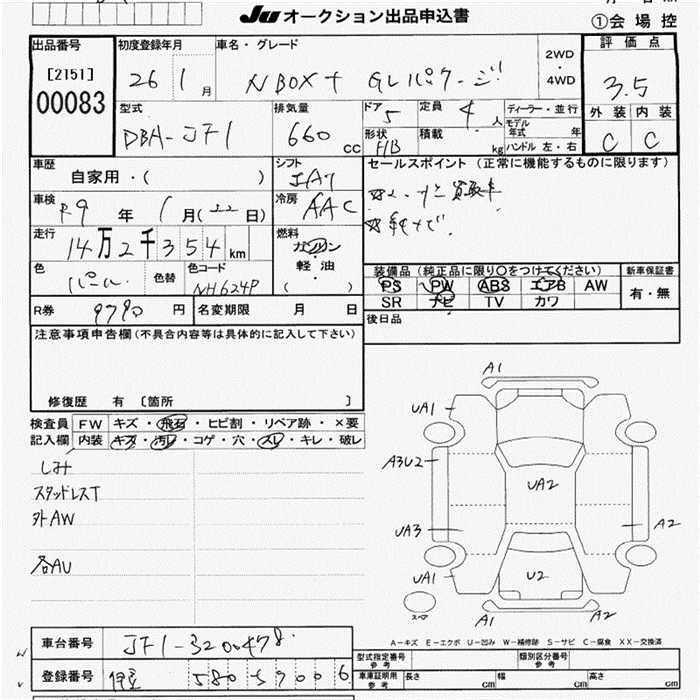 JU オークション出品申込書
①会場控
出品番号
[2151]
00083
初度登録年月
26 年 1 月
車名・グレード
N BOX+ GLパケージ
2WD・4WD
評価点
3.5
外装 内装
C C
型式
DBA-JF1
排気量
660 cc
ドア 5
定員 4 人
形状 HB
積載 kg
ディーラー・並行
モデル年式 年
ハンドル 左・右
車歴
自家用・( )
シフト
冷房
AAC
車検
R9 年 1 月(22日)
走行
14万2千354 km
燃料
ガソリン・軽油・( )
色
パール
色替
色コード
NH624P
R券
9790 円
名変期限 月 日
セールスポイント(正常に機能するものに限ります)
装備品(純正品に限り○をつけてください)
PS PW ABS エアB AW
SR ナビ TV カワ
新車保証書
有・無
後日品
注意事項申告欄(不具合内容等は具体的に記入して下さい)
修復歴 有 〔箇所 〕
検査員記入欄
FW キズ・飛石・ヒビ割・リペア跡・×要
内装 キズ・汚レ・コゲ・穴・スレ・キレ・破レ
しみ
スタッドレスT
外AW
各AU
A1
UA1
A3U2
UA2
UA3
A2
UA1
U2
スペア
A1
A2
A-キズ E-エクボ U-凹み W-補修跡 S-サビ C-腐食 XX-交換済
車台番号
JF1-3200478
登録番号
伊豆 580 5 9006
型式指定番号 参考
類別区分番号 参考
車庫証明用 参考
長さ cm 幅 cm 高さ cm